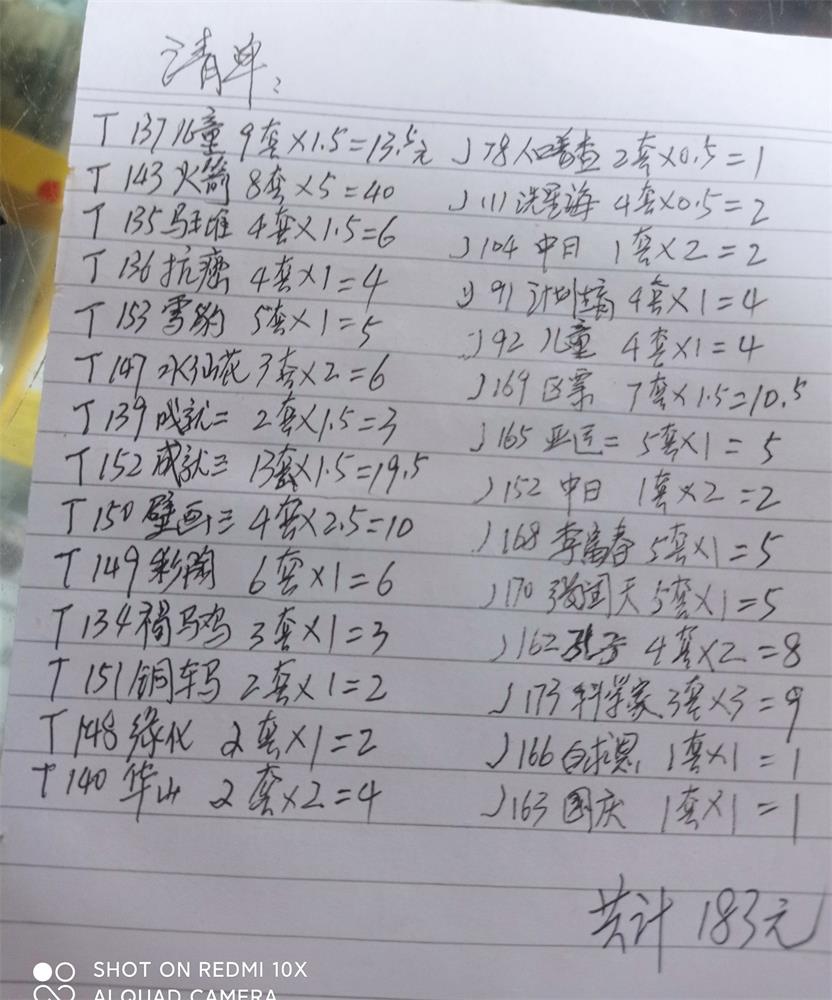 清单:
T 137儿童 9套×1.5=13.5元
T 143火箭 8套×5=40
T 135马王堆 4套×1.5=6
T 136抗癌 4套×1=4
T 153雪豹 5套×1=5
T 147水仙花 3套×2=6
T 139成就二 2套×1.5=3
T 152成就三 13套×1.5=19.5
T 150壁画三 4套×2.5=10
T 149彩陶 6套×1=6
T 134褐马鸡 3套×1=3
T 151铜车马 2套×1=2
T 148绿化 2套×1=2
T 140华山 2套×2=4
J 78人口普查 2套×0.5=1
J 111冼星海 4套×0.5=2
J 104中日 1套×2=2
J 91计划生育 4套×1=4
J 92儿童 4套×1=4
J 169区票 7套×1.5=10.5
J 165亚运二 5套×1=5
J 152中日 1套×2=2
J 168李富春 5套×1=5
J 170张闻天 5套×1=5
J 162孔子 4套×2=8
J 173科学家 3套×3=9
J 166白求恩 1套×1=1
J 163国庆 1套×1=1
共计 183元
SHOT ON REDMI 10X
AI QUAD CAMERA